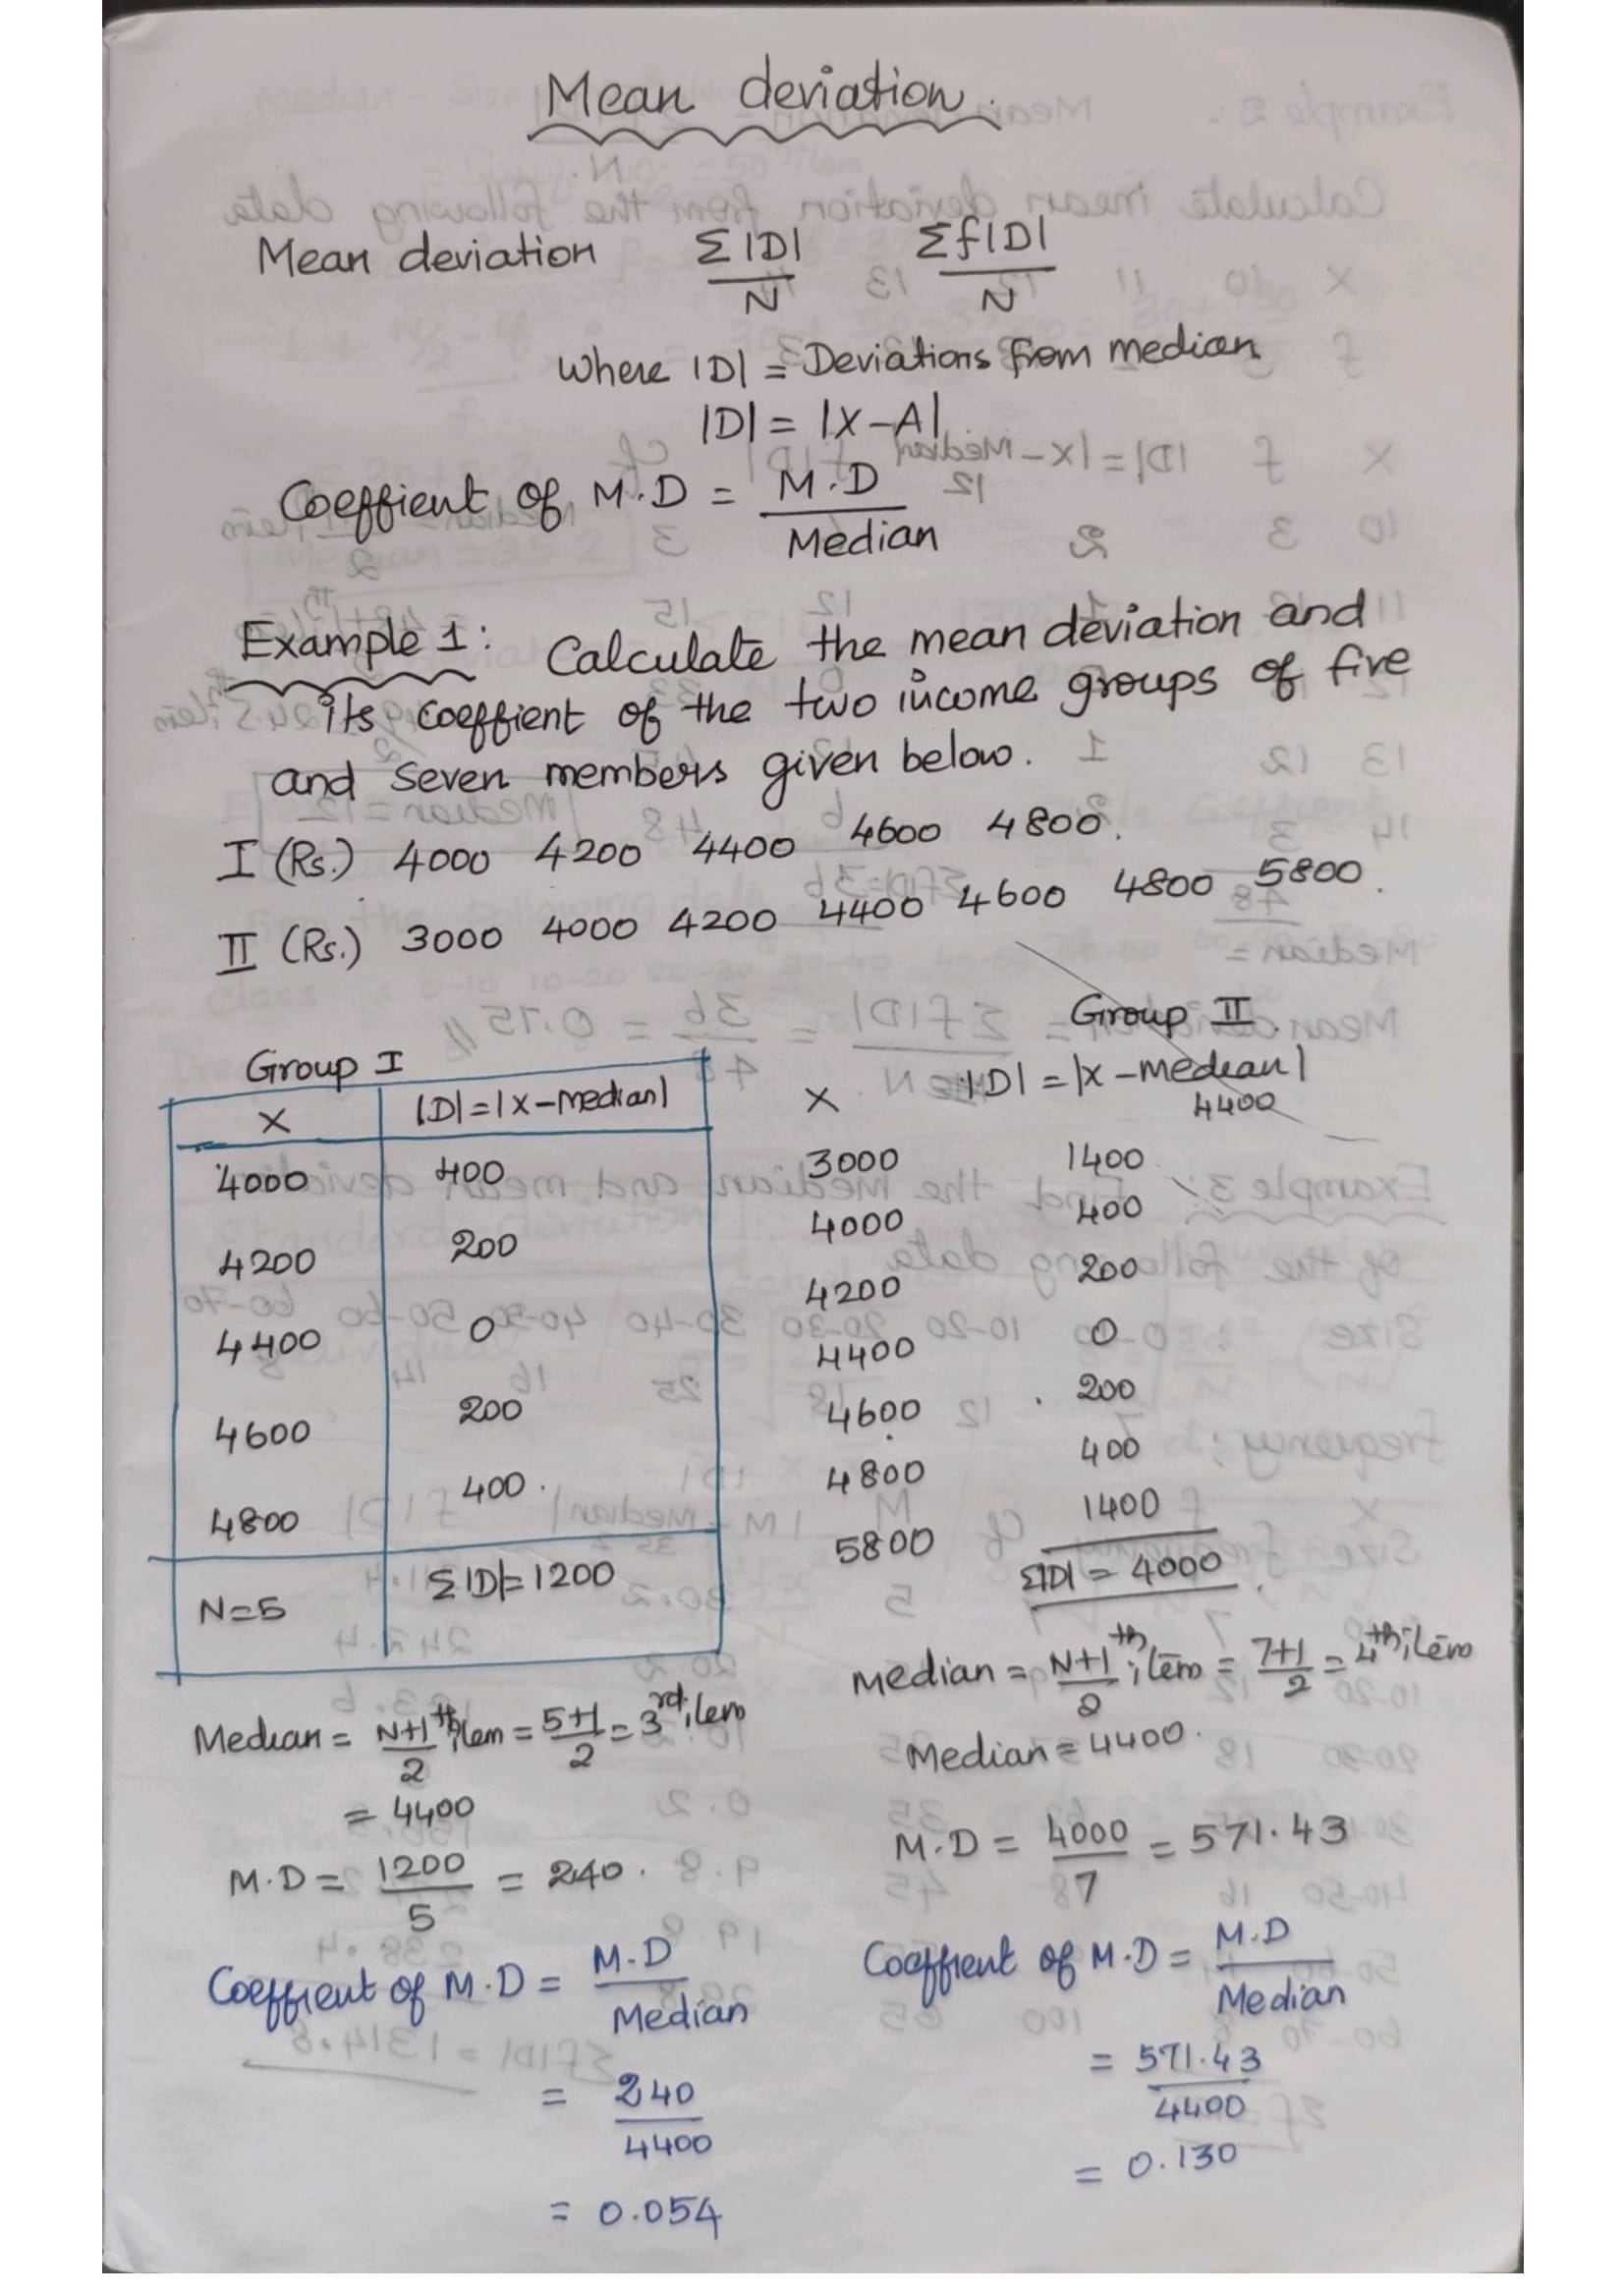 Mean deviation.
Mean deviation Σ|D|/N Σf|D|/N
Where |D| = Deviations from median
|D| = |X-A|
Coeffient of M.D = M.D/Median
Example 1: Calculate the mean deviation and
its coeffient of the two income groups of five
and seven members given below.
I (Rs.) 4000 4200 4400 4600 4800.
II (Rs.) 3000 4000 4200 4400 4600 4800 5800.
Group I
X |D|=|X-median|
4000 400
4200 200
4400 0
4600 200
4800 400.
N=5 Σ|D|=1200
Median = N+1/2 th item = 5+1/2 = 3rd item
= 4400
M.D = 1200/5 = 240.
Coeffient of M.D = M.D/Median
= 240/4400
= 0.054
Group II.
X |D| = |X-median|
4400
3000 1400
4000 400
4200 200
4400 0
4600 200
4800 400
5800 1400
Σ|D| = 4000.
Median = N+1/2 th item = 7+1/2 = 4th item
Median = 4400.
M.D = 4000/7 = 571.43
Coeffient of M.D = M.D/Median
= 571.43/4400
= 0.130